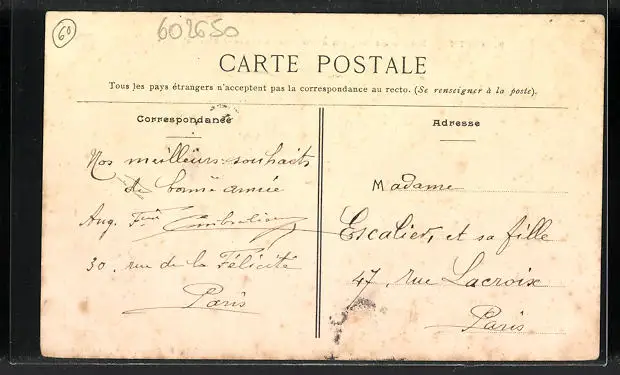 60
602650
CARTE POSTALE
Tous les pays étrangers n'acceptent pas la correspondance au recto. (Se renseigner à la poste).
Correspondance
Nos meilleurs souhaits
de bonne année
Aug.
30. rue de la Félicité
Paris
Adresse
Madame
Escalier, et sa fille
47, rue Lacroix
Paris